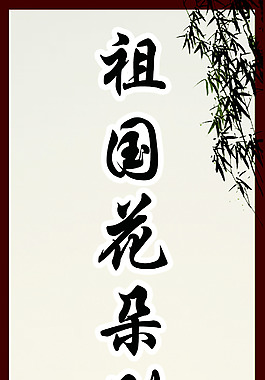 祖国花朵